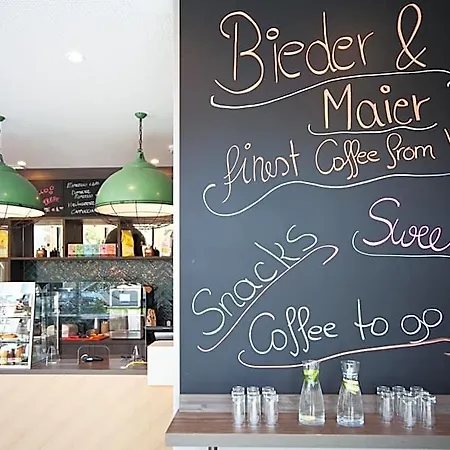 Bieder &
Maier
finest Coffee from
Swee
Snacks
Coffee to go